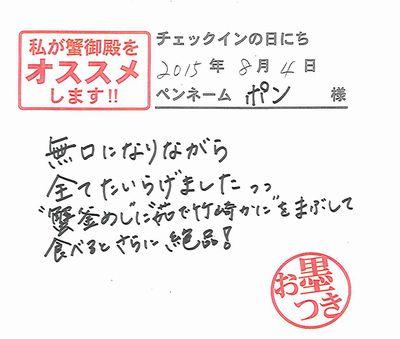 私が蟹御殿を
オススメ
します!!
チェックインの日にち
2015年8月4日
ペンネーム ポン 様
無口になりながら
全てたいらげましたっっ
"蟹釜めし"に"茹で竹崎かに"をまぶして
食べるとさらに絶品!
お墨つき